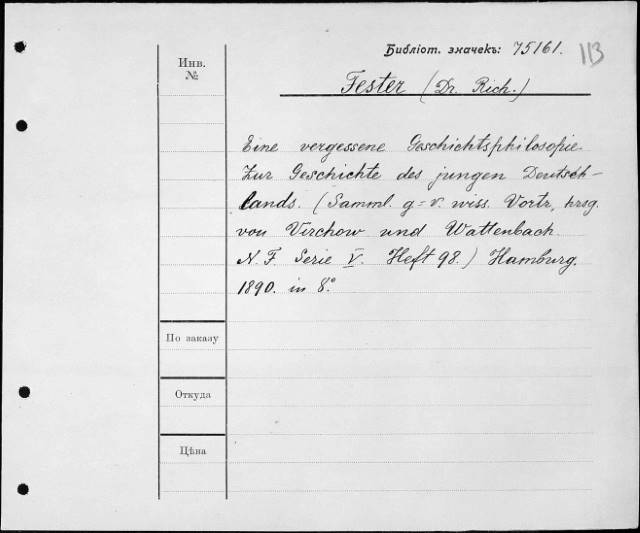 Библіот. значекъ: 75161.
113
Инв.
№
Fester (Dr. Rich.)
Eine vergessene Geschichtsphilosopie.
Zur Geschichte des jungen Deutsch-
lands. (Samml. g=v. wiss. Vortr, hrsg.
von Virchow und Wattenbach.
N. F. Serie V. Heft 98.) Hamburg.
1890. in 8°.
По заказу
Откуда
Цѣна